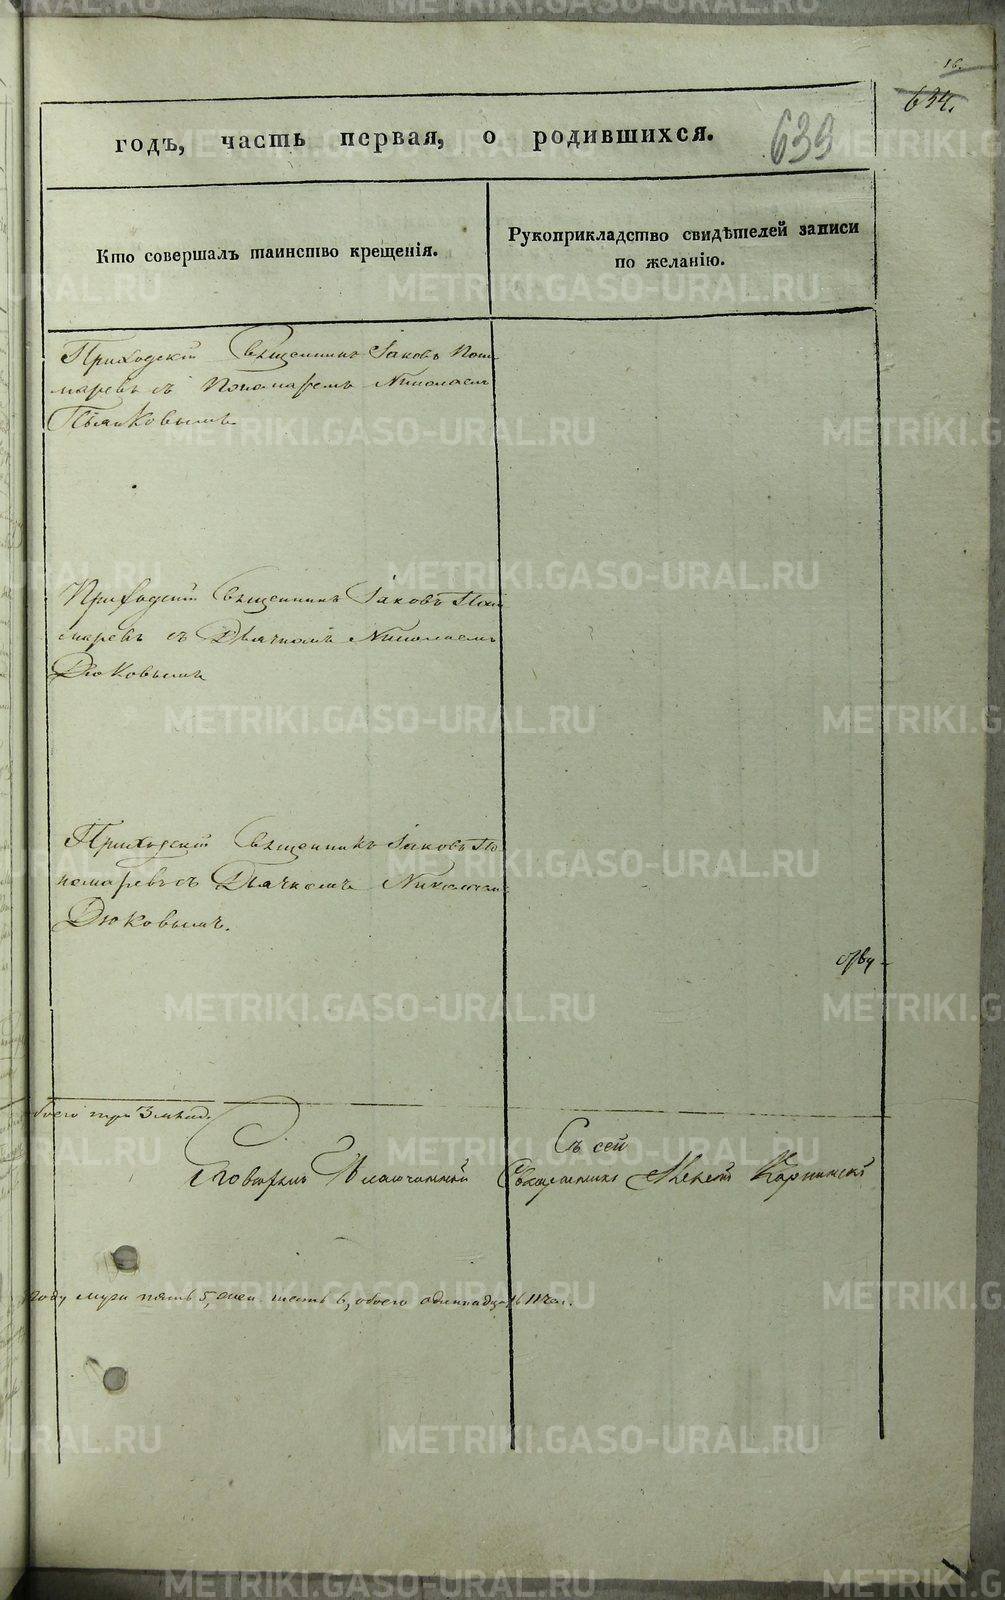 16.
634.
639
годъ, часть первая, о родившихся.
Кто совершалъ таинство крещенія.
Рукоприкладство свидѣтелей записи
по желанію.
Приходскій Священникъ Іаковъ Поно
маревъ съ Пономаремъ Николаемъ
Приходскій Священникъ Іаковъ Поно
маревъ съ Дьячкомъ Николаемъ
Дюковымъ
Приходскій Священникъ Іаковъ По
номаревъ съ Дьячкомъ Николаемъ
Дюковымъ.
обоего три 3 млад.
Съ сей
Священникъ Карпинскій
году муж. пять 5, жен. шесть 6, обоего одинадцать 11 чел.
METRIKI.GASO-URAL.RU